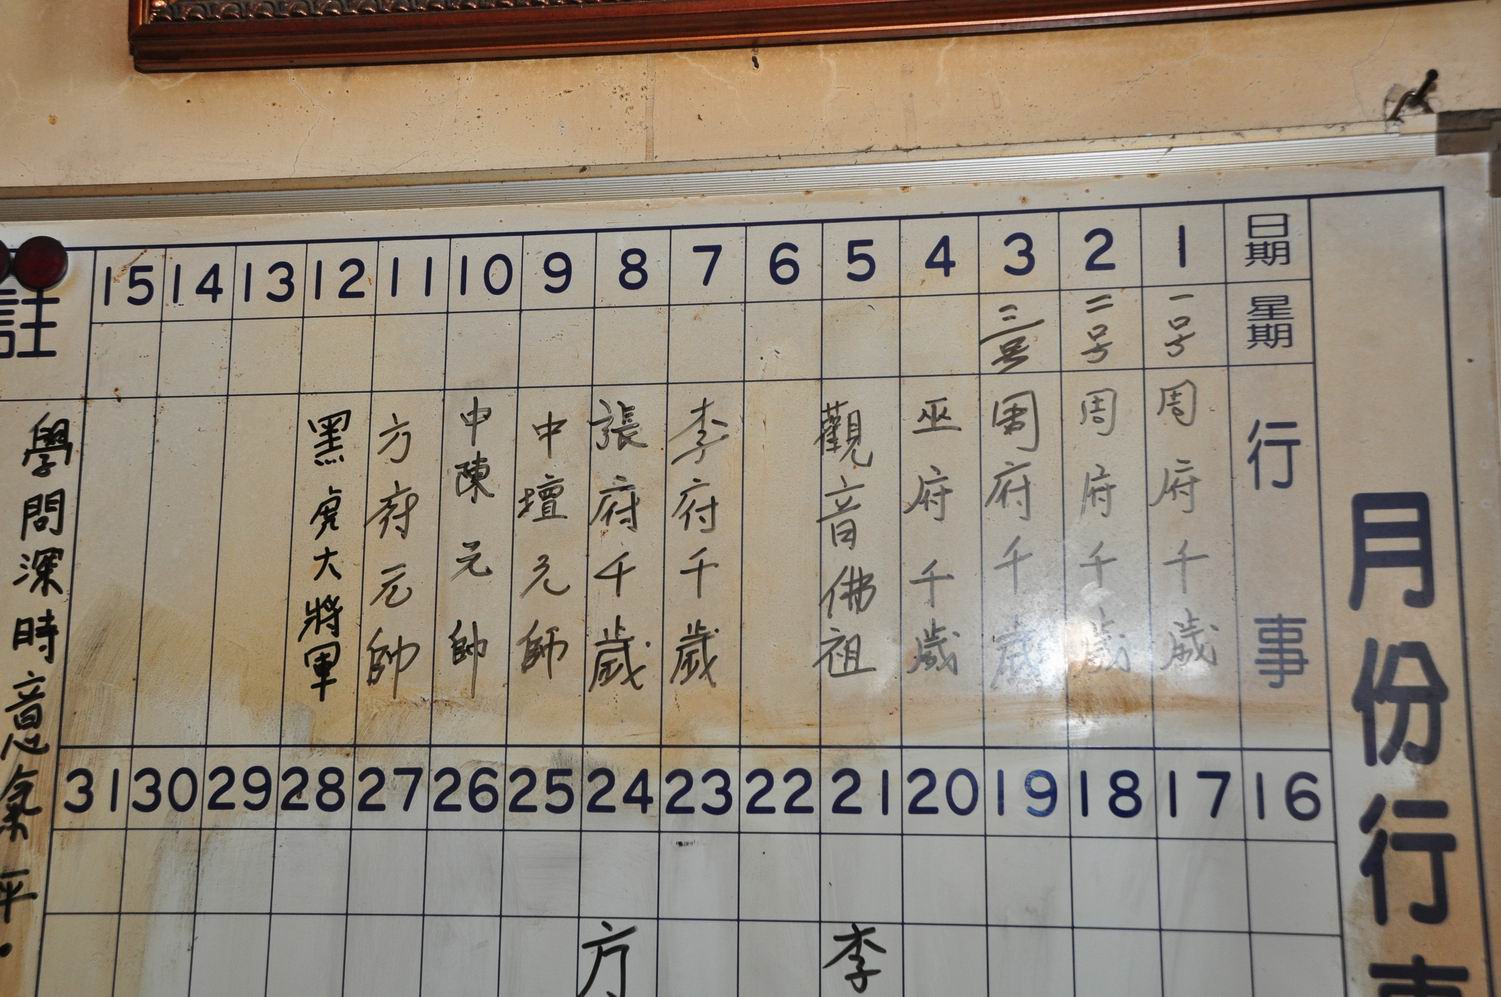 月份行事
日期 星期 行事
1 一号 周府千歲
2 二号 周府千歲
3 三号 周府千歲
4 巫府千歲
5 觀音佛祖
6
7 李府千歲
8 張府千歲
9 中壇元帥
10 中陳元帥
11 方府元帥
12 黑虎大將軍
13
14
15
16
17
18
19
20
21 李
22
23
24 方
25
26
27
28
29
30
31
註
學問深時意氣平.